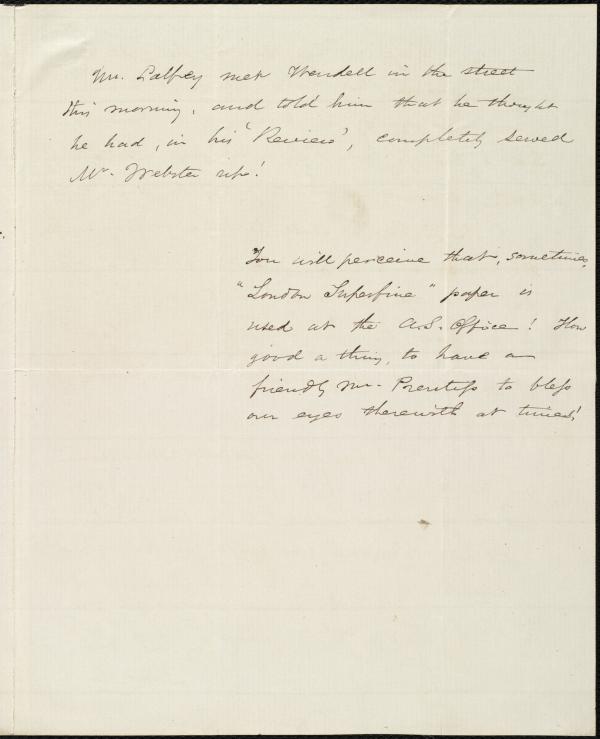 Mr. Palfrey met Wendell in the street
this morning, and told him that he thought
he had, in his 'Review', completely sewed
Mr. Webster up!
You will perceive that, sometimes,
"London Superfine" paper is
used at the A.S. Office! How
good a thing, to have a
friendly Mr. Prentiss to bless
our eyes therewith at times!